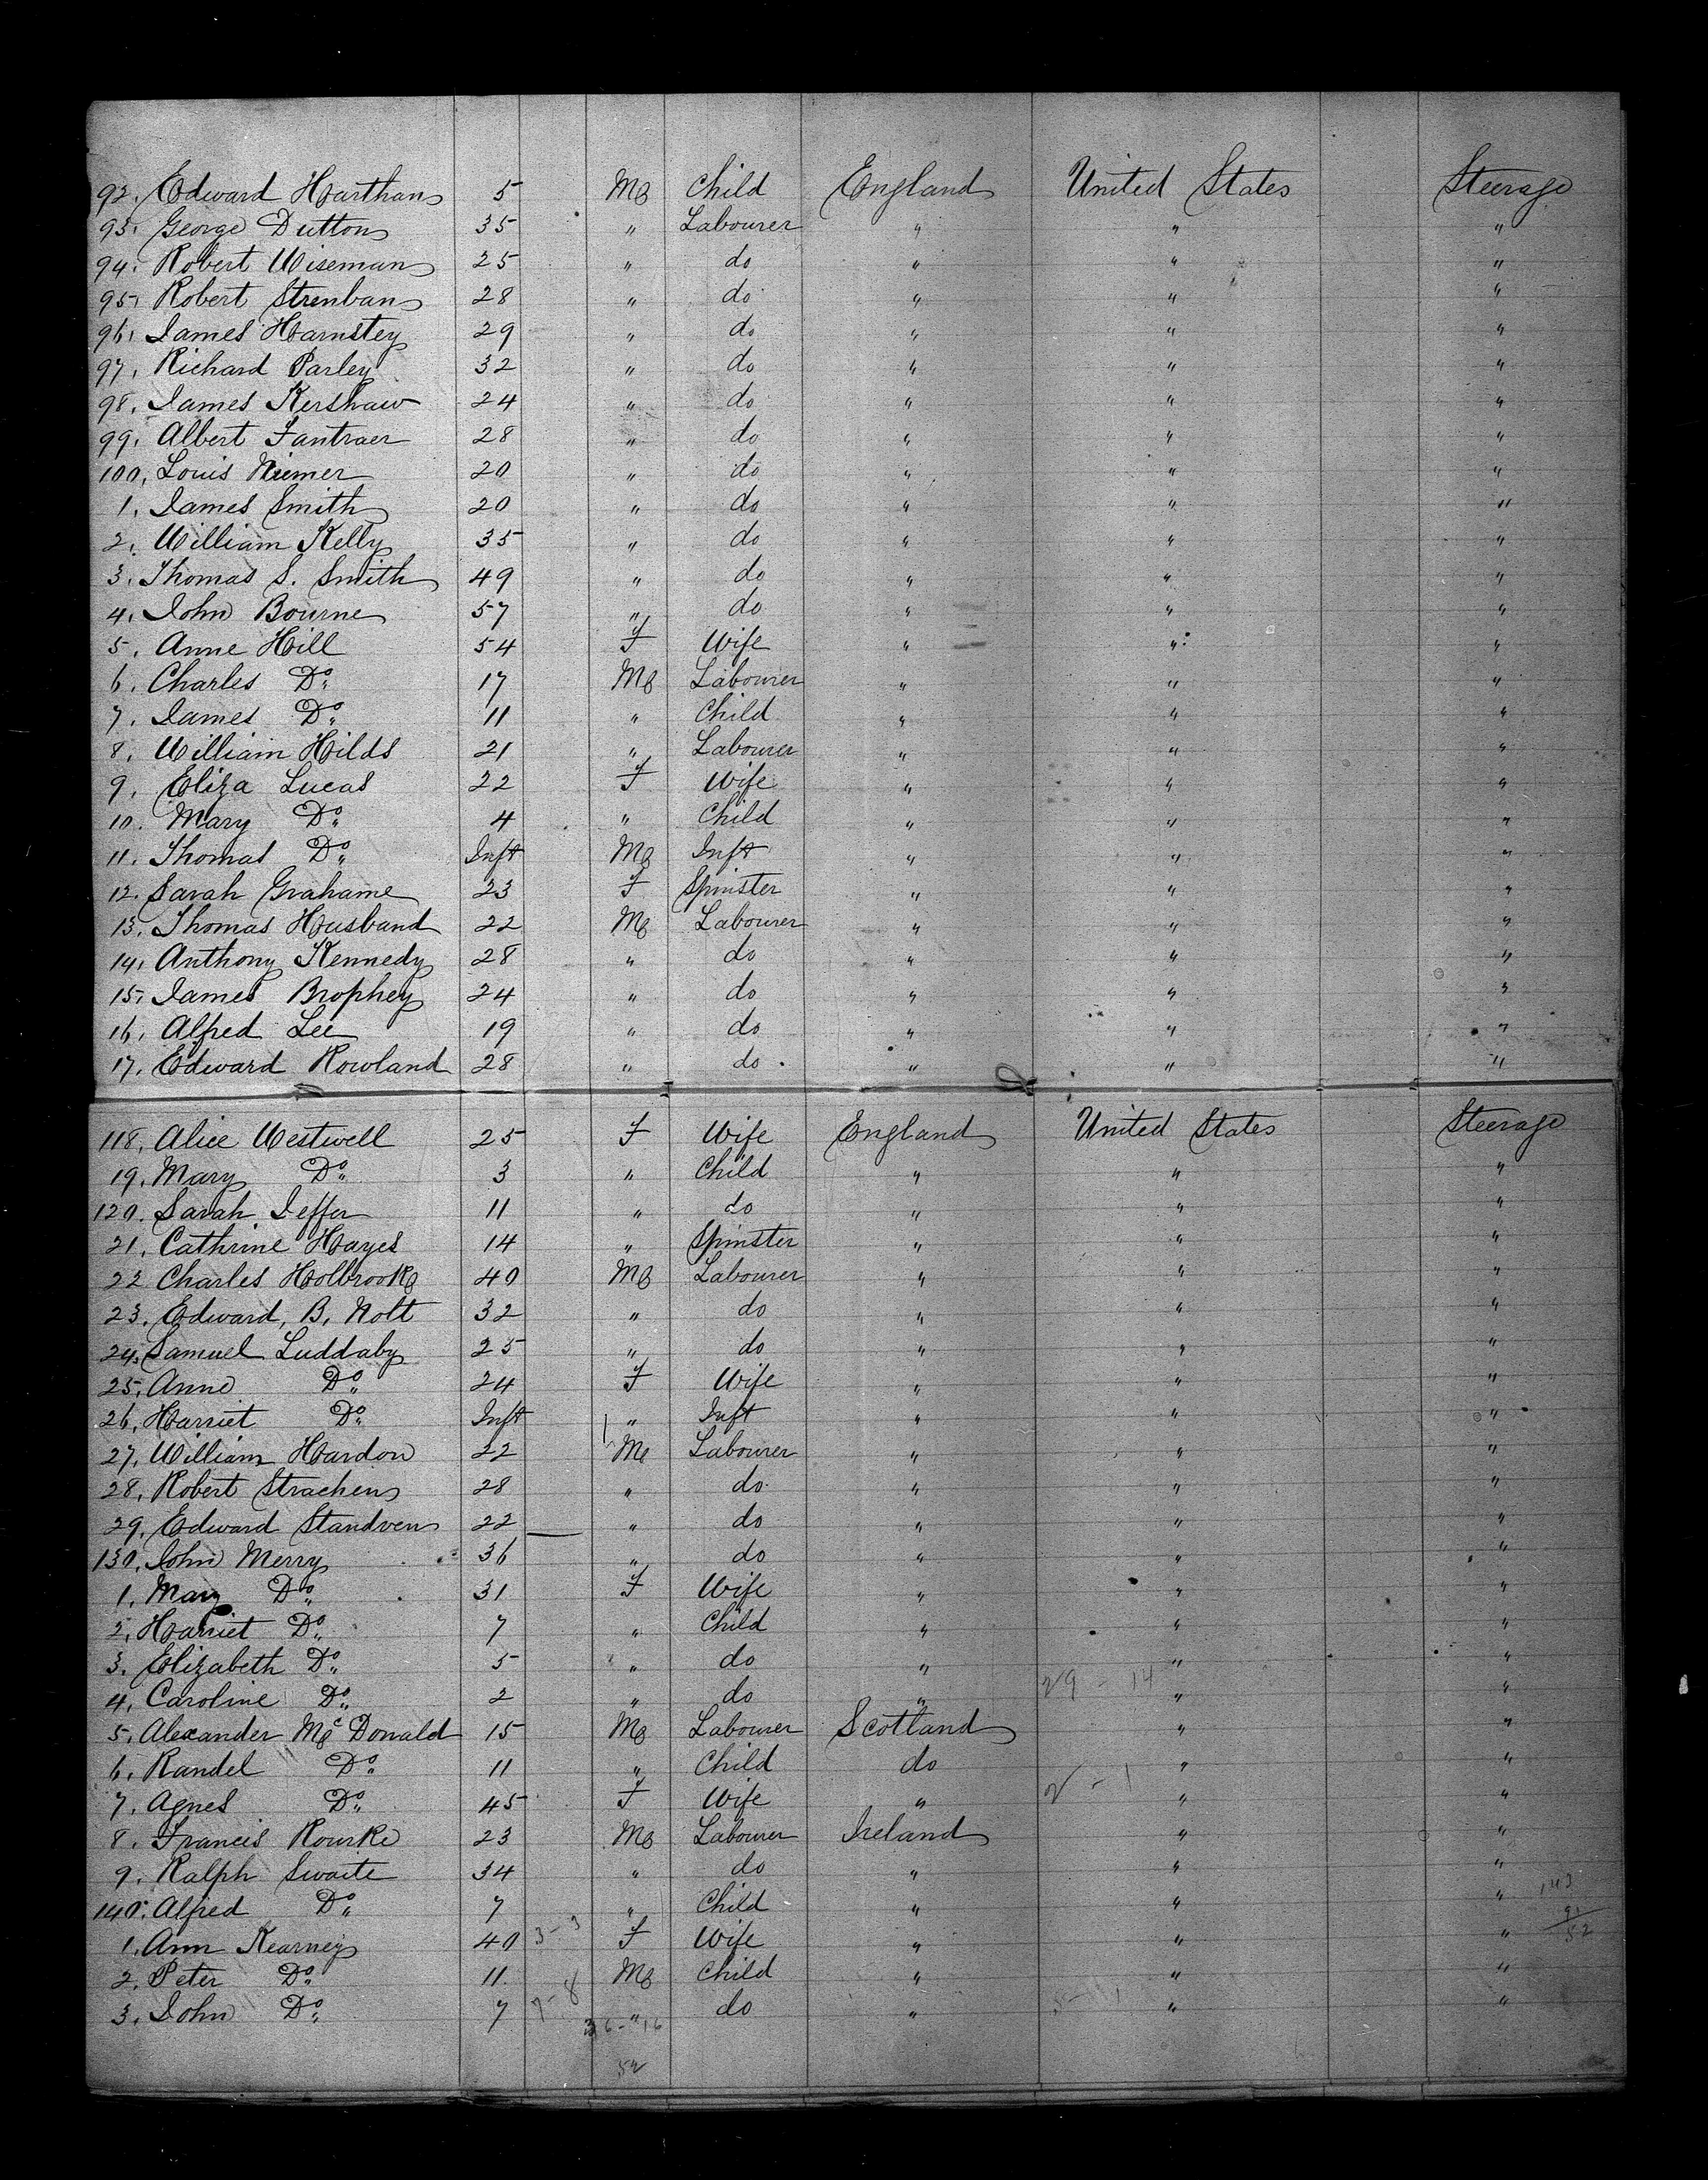 92. Edward Harthan 5 M Child England United States Steerage
93. George Dutton 35 " Labourer " " "
94. Robert Wiseman 25 " do " " "
95. Robert Strenban 28 " do " " "
96. James Harnstey 29 " do " " "
97. Richard Parley 32 " do " " "
98. James Kershaw 24 " do " " "
99. Albert Fantraer 28 " do " " "
100. Louis Niemer 20 " do " " "
1. James Smith 20 " do " " "
2. William Kelly 35 " do " " "
3. Thomas S. Smith 49 " do " " "
4. John Bourne 57 " do " " "
5. Anne Hill 54 F Wife " " "
6. Charles Do 17 M Labourer " " "
7. James Do 11 " Child " " "
8. William Hilds 21 " Labourer " " "
9. Eliza Lucas 22 F Wife " " "
10. Mary Do 4 " Child " " "
11. Thomas Do Inft M Inft " " "
12. Sarah Grahame 23 F Spinster " " "
13. Thomas Husband 22 M Labourer " " "
14. Anthony Kennedy 28 " do " " "
15. James Brophey 24 " do " " "
16. Alfred Lee 19 " do " " "
17. Edward Rowland 28 " do " " "
118. Alice Westwell 25 F Wife England United States Steerage
19. Mary Do 3 " Child " " "
120. Sarah Jeffer 11 " do " " "
21. Cathrine Hayes 14 " Spinster " " "
22 Charles Holbrooke 40 M Labourer " " "
23. Edward, B. Nolt 32 " do " " "
24. Samuel Luddaby 25 " do " " "
25. Anne Do 24 F Wife " " "
26. Harriet Do Inft " Inft " " "
27. William Hardon 22 M Labourer " " "
28. Robert Strachen 28 " do " " "
29. Edward Standven 22 " do " " "
130. John Merry 36 " do " " "
1. Mary Do 31 F Wife " " "
2. Harriet Do 7 " Child " " "
3. Elizabeth Do 5 " do " " "
4. Caroline Do 2 " do " 29 - 14 " "
5. Alexander Mc Donald 15 M Labourer Scotland " "
6. Randel Do 11 " Child do " "
7. Agnes Do 45 F Wife " 2 - 1 " "
8. Francis Rourke 23 M Labourer Ireland " "
9. Ralph Swaite 34 " do " " "
140. Alfred Do 7 " Child " " " 143
1. Ann Kearney 40 3-3 F Wife " " " 91
52
2. Peter Do 11 M Child " " "
3. John Do 7 7-8 " do " " "
36-16
52